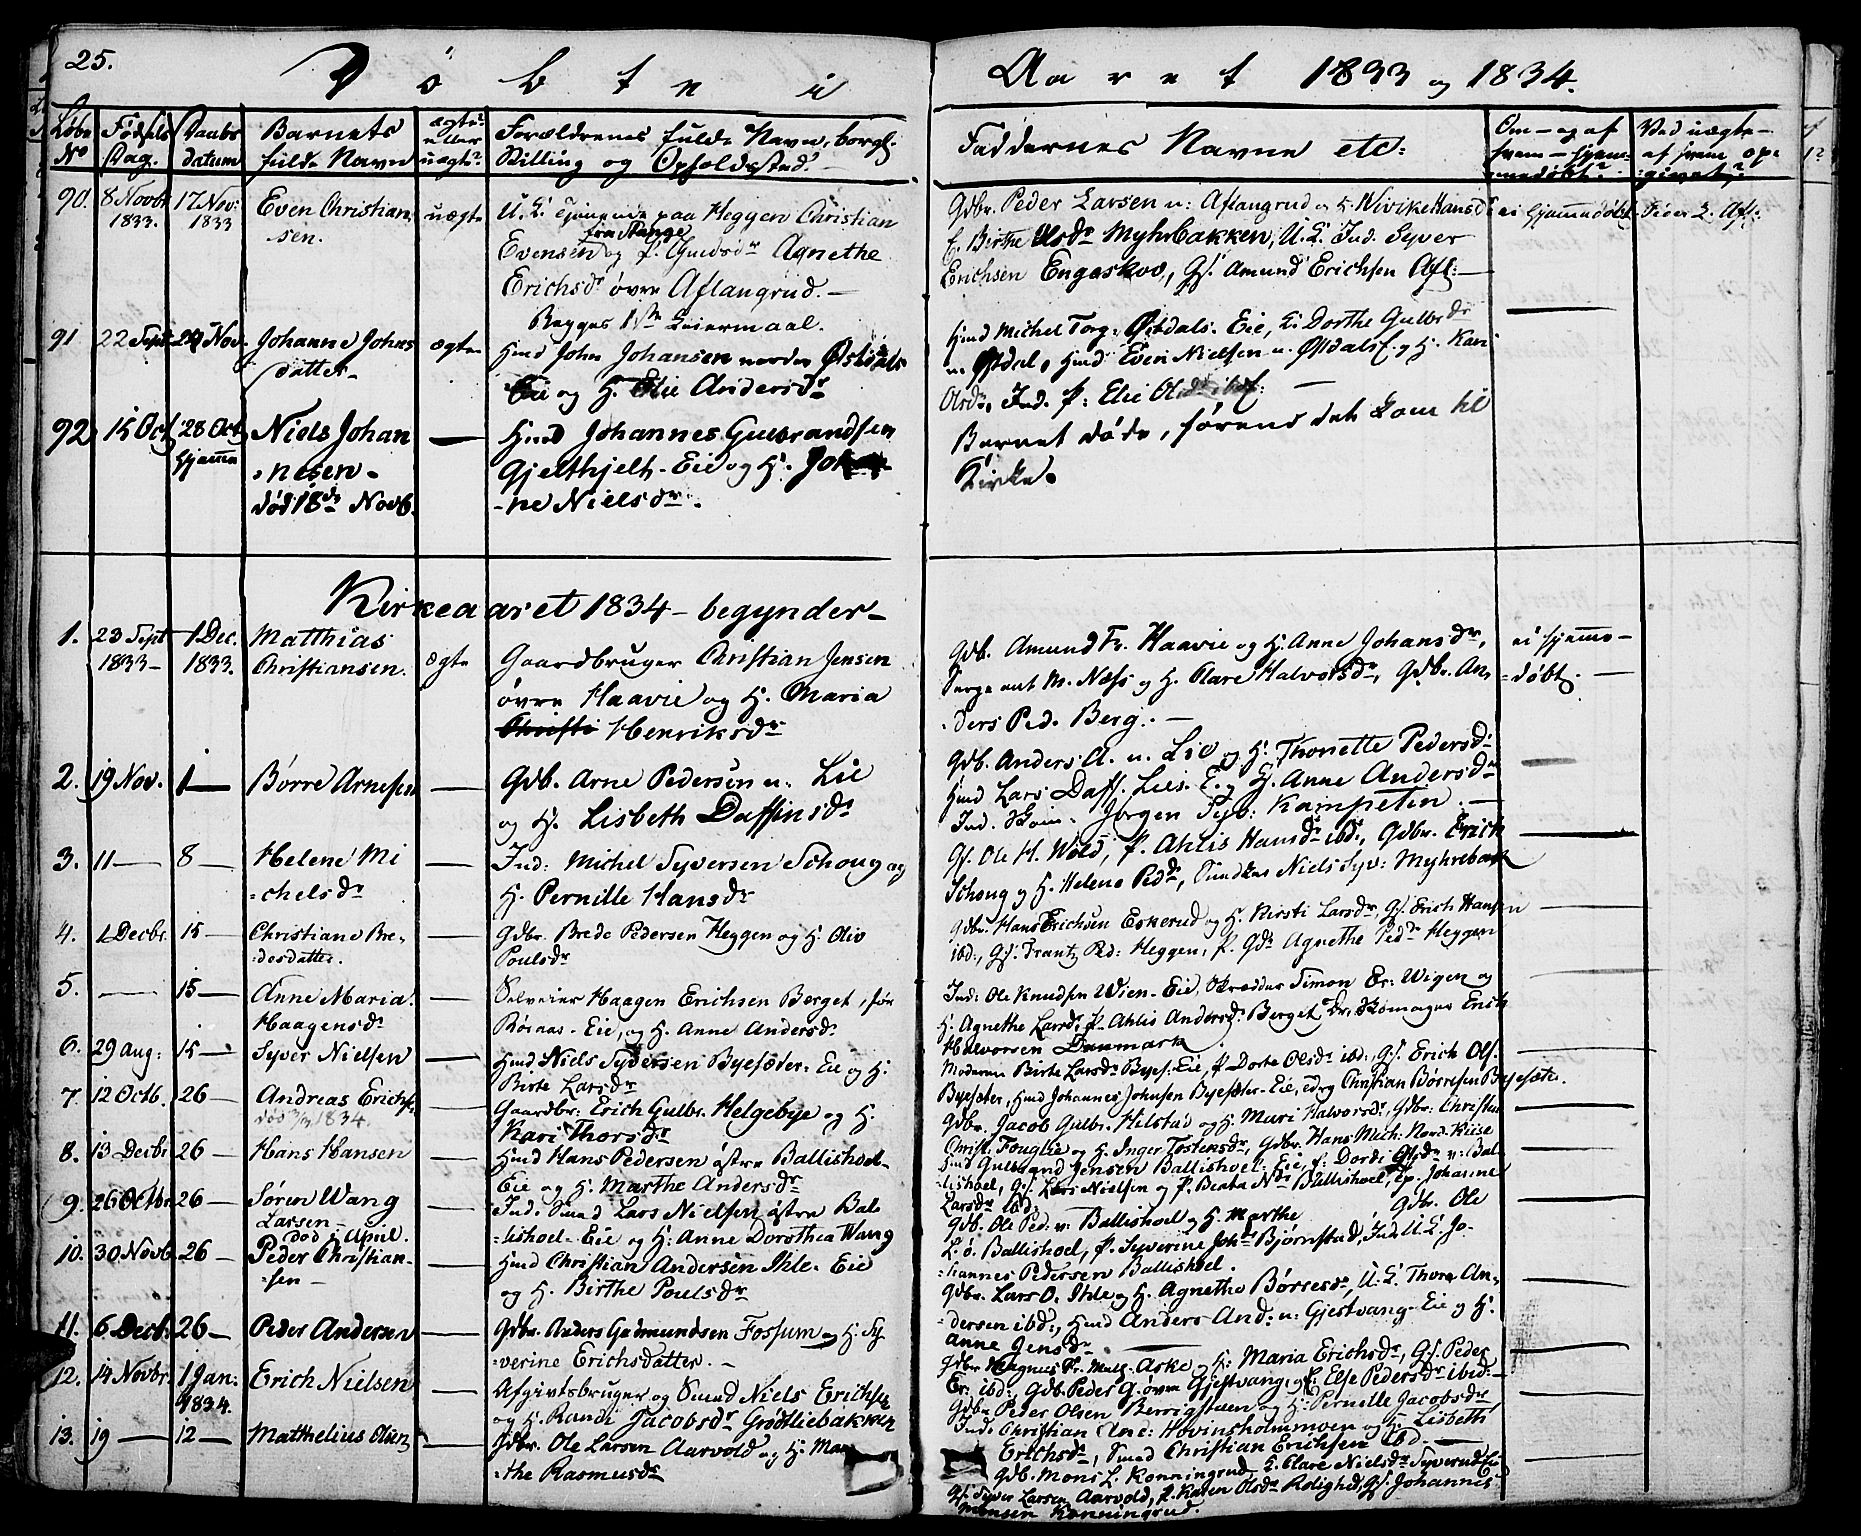 25.
Döbte i
Aaret 1833 og 1834.
Löbe No
Födsels Dag.
Daabs datum
Barnets fulde Navn
ægte eller uægte
Forældrenes fulde Navn, borgl. Stilling og Opholdssted.
Faddernes Navne etc:
Om og af hvem hjemmedöbt?
Ved uægte af hvem opgivet?
90. 8 Novbr 1833. 17 Nov: 1833 Even Christiansen. uægte
U. K. Tjenende paa Heggen Christian
Evensen fra Stange og P. Gmdsdr Agnethe
Erichsdr övre Aflangrud. —
Begges 1ste Leiermaal.
Gdbr. Peder Larsen n: Aflangrud og H. Wivike Hansdr
Birthe Olsdr Myhrbakken, U. K. Ind. Syver
Erichsen Engeskov, Gs. Amund Erichsen Afl: —
ei hjemmedöbt.
Peder L. Afl:
91 22 Sept 29 Nov. Johanne Johnsdatter ægte
Hmd John Johansen nordre Östdals
Eie og H. Olie Andersdr
Hmd Michel Torg: Östdals. Eie, K. Dorthe Gulbrdr
n. Östdal, Hmd Even Nielsen n. Östdals E. og H. Kari
Olsdr, Ind. P: Elie Ols
92 15 Oct 28 Oct hjemme Niels Johannesen.
död 18de Novb. —
Hmd Johannes Gulbrandsen
Gjelthjelt. Eie og H. Johanne Nielsdr.
Barnet döde, förend det kom til
Kirke.
Kirkeaaret 1834 — begynder —
1. 23 Sept 1833 — 1 Dec. 1833. Matthias Christiansen. ægte
Gaardbruger Christian Jensen
övre Haavie og H. Maria
Henriksdr
Gdb. Amund Fr. Haavie og H. Anne Johansdr,
Sergeant M. Næss og H. Clare Halvorsdr, Gdbr. Anders Ped. Berg. —
ei hjemmedöbt. —
2. 19 Nov. 1 — Börre Arnesen —
Gdb. Arne Pedersen n. Lie
og H. Lisbeth Daffinsdr
Gdb. Anders A. n. Lie og H. Thonette Pedersdr
Hmd Lars Daff. Lies. E. og H. Anne Andersdr
Ind. Skom. Jörgen Kampetin. —
3. 11 — 8 — Helene Michelsdr —
Ind: Michel Syversen Schoug og
H. Pernille Hansdr
Gs. Ole H. Wold, P. Ahlis Hansdr ibd:, Gdbr. Erich
Schoug og H. Helene Peddr, Niels Syv: Myhrebak
4. 1 Decbr. 15 — Christiane Bredesdatter. —
Gdbr. Brede Pedersen Heggen og H. Oliv
Poulsdr
Gdbr. Hans Erichsen Eskerud og H. Kirsti Larsdr, Gs. Erich Hansen
ibd:, Gs. Frantz Ped: Heggen, P. Agnethe Peddr Heggen
5. — 15 — Anne Maria Haagensdr —
Selveier Haagen Erichsen Berget, för
Börnæs. Eie, og H. Anne Andersdr
Ind: Ole Knudsen Wien. Eie, Skrædder Simon Er: Wigen og
H. Agnethe Larsdr, P. Ahlis Andersdr Berget, Skomager Erich
Halvorsen Danmark.
6. 29 Aug: 15 — Syver Nielsen —
Hmd Niels Syversen Byesæter. Eie og H.
Birte Larsdr
Moderen Birte Larsdr Byes. Eie, P. Dorte Olsdr ibd:, Gs. Erich Ols.
Byesæter, Hmd Johannes Johnsen Byesæter. Eie, Christian Börresen Byesæter.
7. 12 Octb. 26 — Andreas Erichs
död 1834. —
Gaardbr: Erich Gulbr. Helgebye og H.
Kari Thorsdr
Gdbr. Jacob Gulbr. Hilstad og H. Mari Halvorsdr, Gdbr: Christen
Christ. Fouglie og H. Inger Tostensdr, Gdbr. Hans Mich: Nord. Kiise
8. 13 Decbr. 26 — Hans Hansen —
Hmd Hans Pedersen östre Ballishoel.
Eie og H. Marthe Andersdr
Hmd Gulbrand Jensen Ballishoel. Eie, P: Dordi Olsdr n: Ballishoel, Gs. Lars Nielsen og P. Beata Ballishoel, Johanne
Larsdr ibd:
9. 26 Octbr. 26 — Sören Wang Larsen —
död i April. —
Ind: Smed Lars Nielsen östre Ballishoel. Eie og H: Anne Dorothea Wang
Gdb. Ole Ped: n: Ballishoel og H. Marthe Gdbr. Ole
L. ö. Ballishoel, P. Syverine Johdr Björnstad, Ind. U. K. Johannes Pedersen Ballishoel.
10. 30 Novb. 26 — Peder Christiansen — —
Hmd Christian Andersen Ihle. Eie
og H. Birthe Poulsdr
Gdbr. Lars O. Ihle og H. Agnethe Börresdr, U. K. Thore Andersen ibd:, Hmd Anders And: n: Gjestvang. Eie og H.
Anne Jensdr
11. 6 Decb: 26 — Peder Andersen —
Gdbr. Anders Gudmundsen Fossum og H. Syverine Erichsdatter. —
Gdbr. Magnus Aske og H: Maria Erichsdr, Gs. Peder
Er: ibd:, Gdb. Peder G. övre Gjestvang, og Else Pedersdr ibid: —
12. 14 Novbr. 1 Jan: 1834. Erich Nielsen —
Afgivtsbruger og Smed Niels Erichsen
og H. Randi Jacobsdr Grötliebakken
Gdbr. Peder Olsen Berrigstuen og H: Pernille Jacobsdr,
Ind: Christian Hovinsholmmoen og H. Lisbeth
Erichsdr, Smed Christian Erichsen ibd. —
13. 19 — 12 — Matthelius Olsen —
Gdbr. Ole Larsen Aarvold og H. Marthe Rasmusdr
Gdb. Mons L. Konningrud, K. Clare Nielsdr Syverud Eie
Gs. Syver Larsen Aarvold, P. Karen Olsdr Rolighed, Gs. Johannes
Monsen Konningrud.